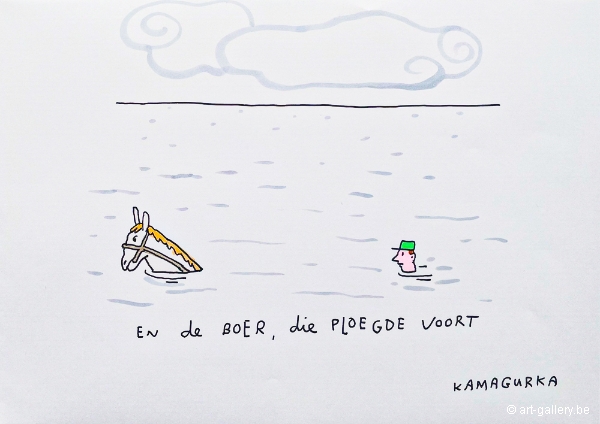 EN de BOER, die PLOEGDE VOORT
KAMAGURKA
© art-gallery.be